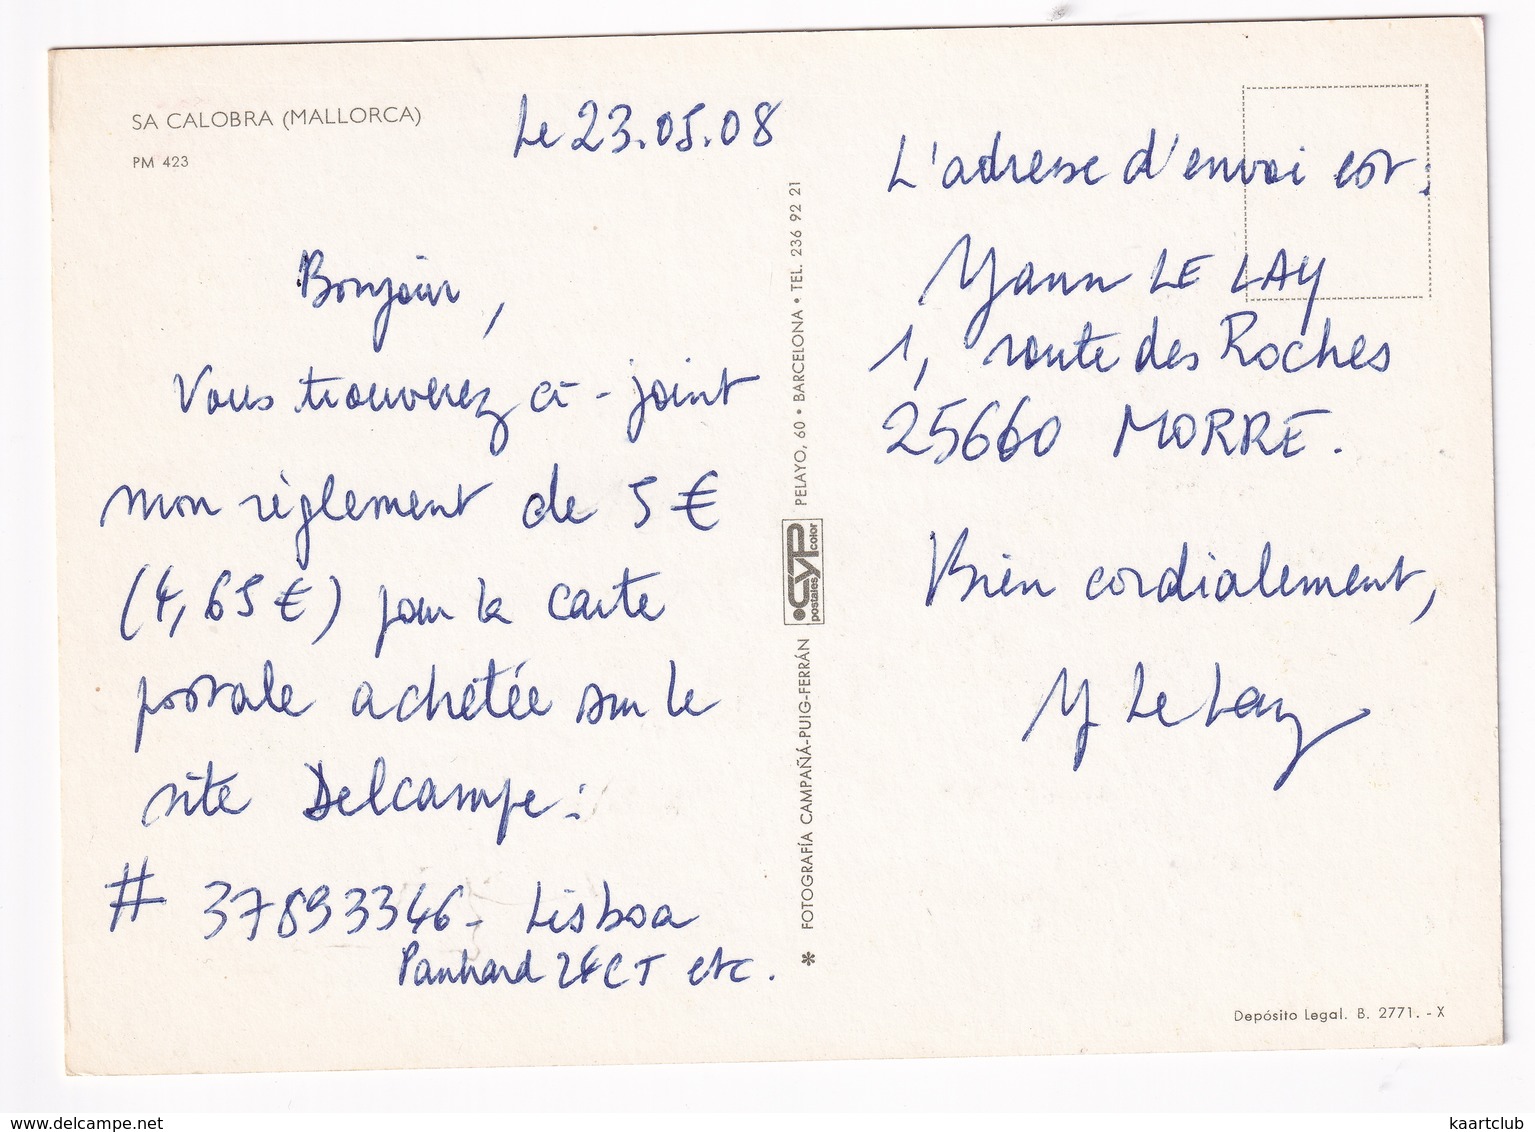 SA CALOBRA (MALLORCA)
PM 423
Le 23.05.08
Bonjour,
Vous trouverez ci-joint
mon règlement de 5 €
(4,65 €) pour la carte
postale achetée sur le
site Delcampe :
# 37893346 - Lisboa
Panhard 24CT etc.
* FOTOGRAFÍA CAMPAÑÁ-PUIG-FERRÁN
CYP
postales color
PELAYO, 60 • BARCELONA • TEL. 236 92 21
L'adresse d'envoi est :
Yann LE LAY
1, route des Roches
25660 MORRE.
Bien cordialement,
Y Le Lay
Depósito Legal. B. 2771. - X
www.delcampe.net
kaartclub